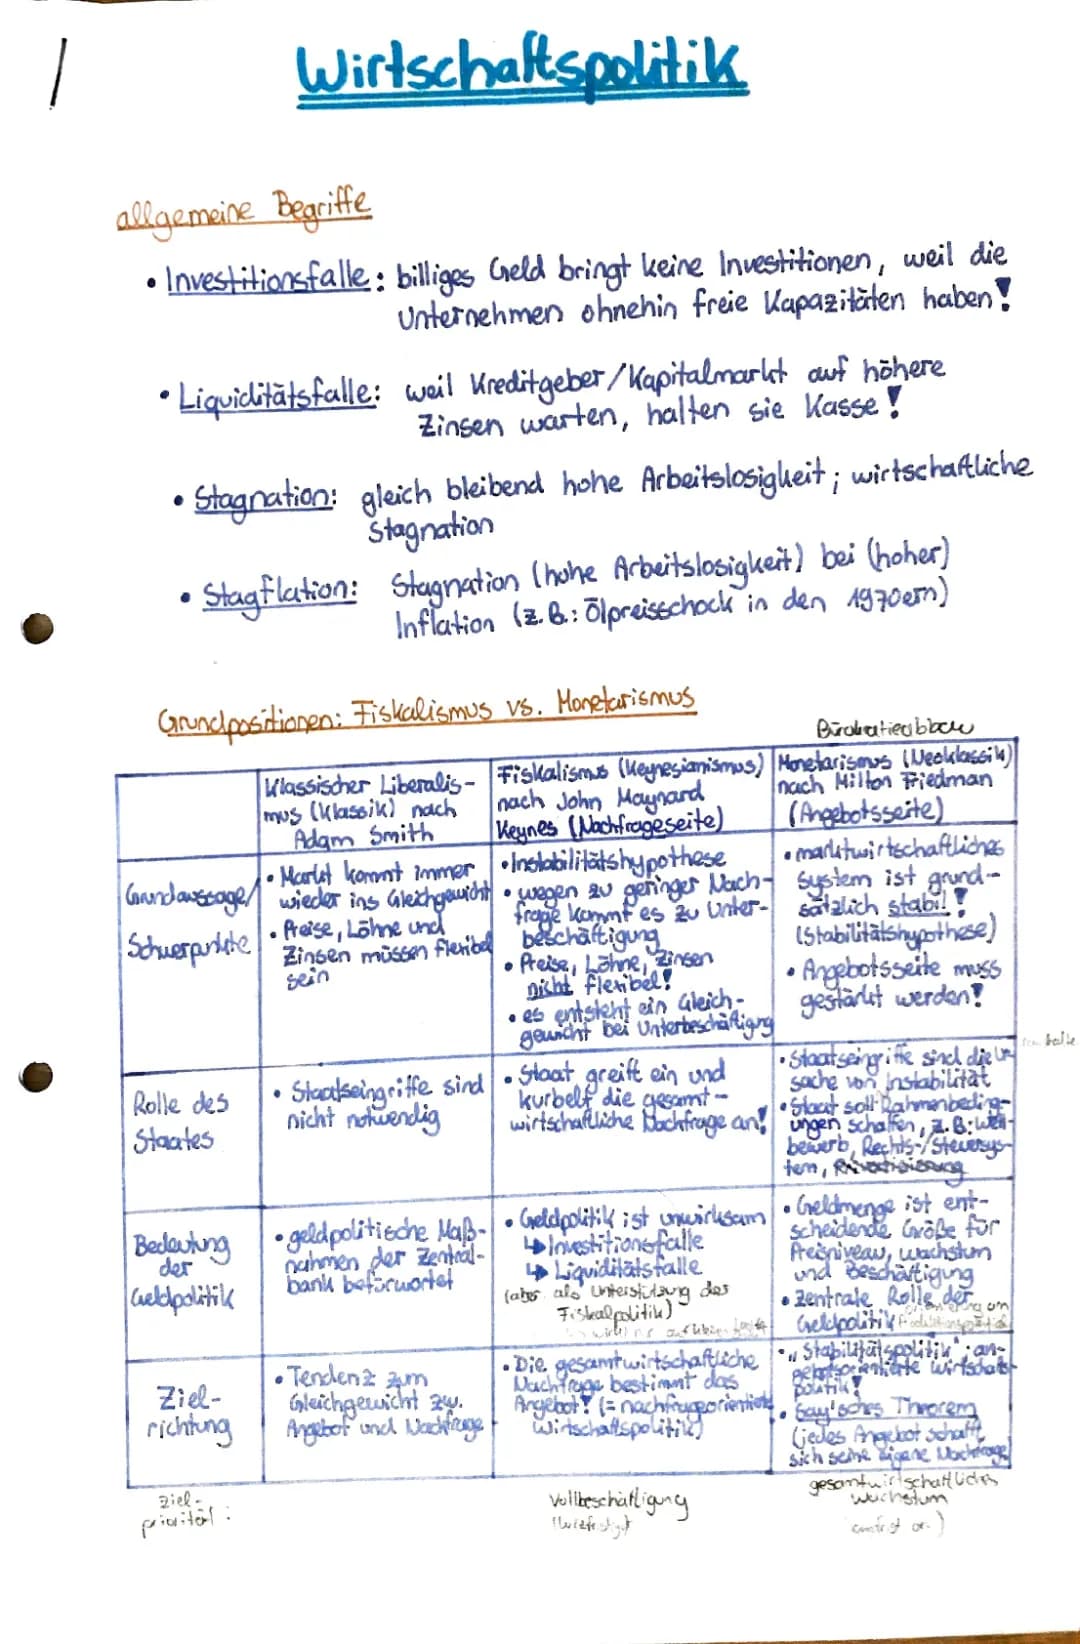 Wirtschaftspolitik
allgemeine Begriffe
• Investitionsfalle: billiges Geld bringt keine Investitionen, weil die
Unternehmen ohnehin freie Kapazitäten haben!
• Liquiditätsfalle: weil Kreditgeber/Kapitalmarkt auf höhere
Zinsen warten, halten sie Kasse!
• Stagnation: gleich bleibend hohe Arbeitslosigkeit; wirtschaftliche
Stagnation
• Stagflation: Stagnation (hohe Arbeitslosigkeit) bei (hoher)
Inflation (z.B.: Ölpreisschock in den 1970ern)
Grundpositionen: Fiskalismus vs. Monetarismus
Bürokratieabbau
Klassischer Liberalis-
mus (Klassik) nach
Adam Smith
Fiskalismus (Keynesianismus)
nach John Maynard
Keynes (Nachfrageseite)
Monetarismus (Neoklassik)
nach Milton Friedman
(Angebotsseite)
Grundaussage/
Schwerpunkte
• Markt kommt immer
wieder ins Gleichgewicht
• Preise, Löhne und
Zinsen müssen flexibel
sein
• Instabilitätshypothese
• wegen zu geringer Nach-
frage kommt es zu Unter-
beschäftigung
• Preise, Löhne, Zinsen
nicht flexibel!
• es entsteht ein Gleich-
gewicht bei Unterbeschäftigung
• marktwirtschaftliches
System ist grund-
sätzlich stabil!
(Stabilitätshypothese)
• Angebotsseite muss
gestärkt werden!
Rolle des
Staates
• Staatseingriffe sind
nicht notwendig
• Staat greift ein und
kurbelt die gesamt-
wirtschaftliche Nachfrage an!
• Staatseingriffe sind die Ur-
sache von Instabilität
• Staat soll Rahmenbeding-
ungen schaffen, z.B.: Wett-
bewerb, Rechts-/Steuersys-
tem, Privatisierung
Bedeutung
der
Geldpolitik
• geldpolitische Maß-
nahmen der Zentral-
bank befürwortet
• Geldpolitik ist unwirksam
↳ Investitionsfalle
↳ Liquiditätsfalle
(aber als Unterstützung der
Fiskalpolitik)
• Geldmenge ist ent-
scheidende Größe für
Preisniveau, Wachstum
und Beschäftigung
• zentrale Rolle der
Geldpolitik
Ziel-
richtung
• Tendenz zum
Gleichgewicht zw.
Angebot und Nachfrage
• Die gesamtwirtschaftliche
Nachfrage bestimmt das
Angebot! (= nachfrageorientierte
Wirtschaftspolitik)
• „Stabilitätspolitik“; an-
gebotsorientierte Wirtschafts-
politik!
• Say'sches Theorem
(jedes Angebot schafft
sich seine eigene Nachfrage)
Ziel-
priorität:
Vollbeschäftigung
(kurzfristig)
gesamtwirtschaftliches
Wachstum